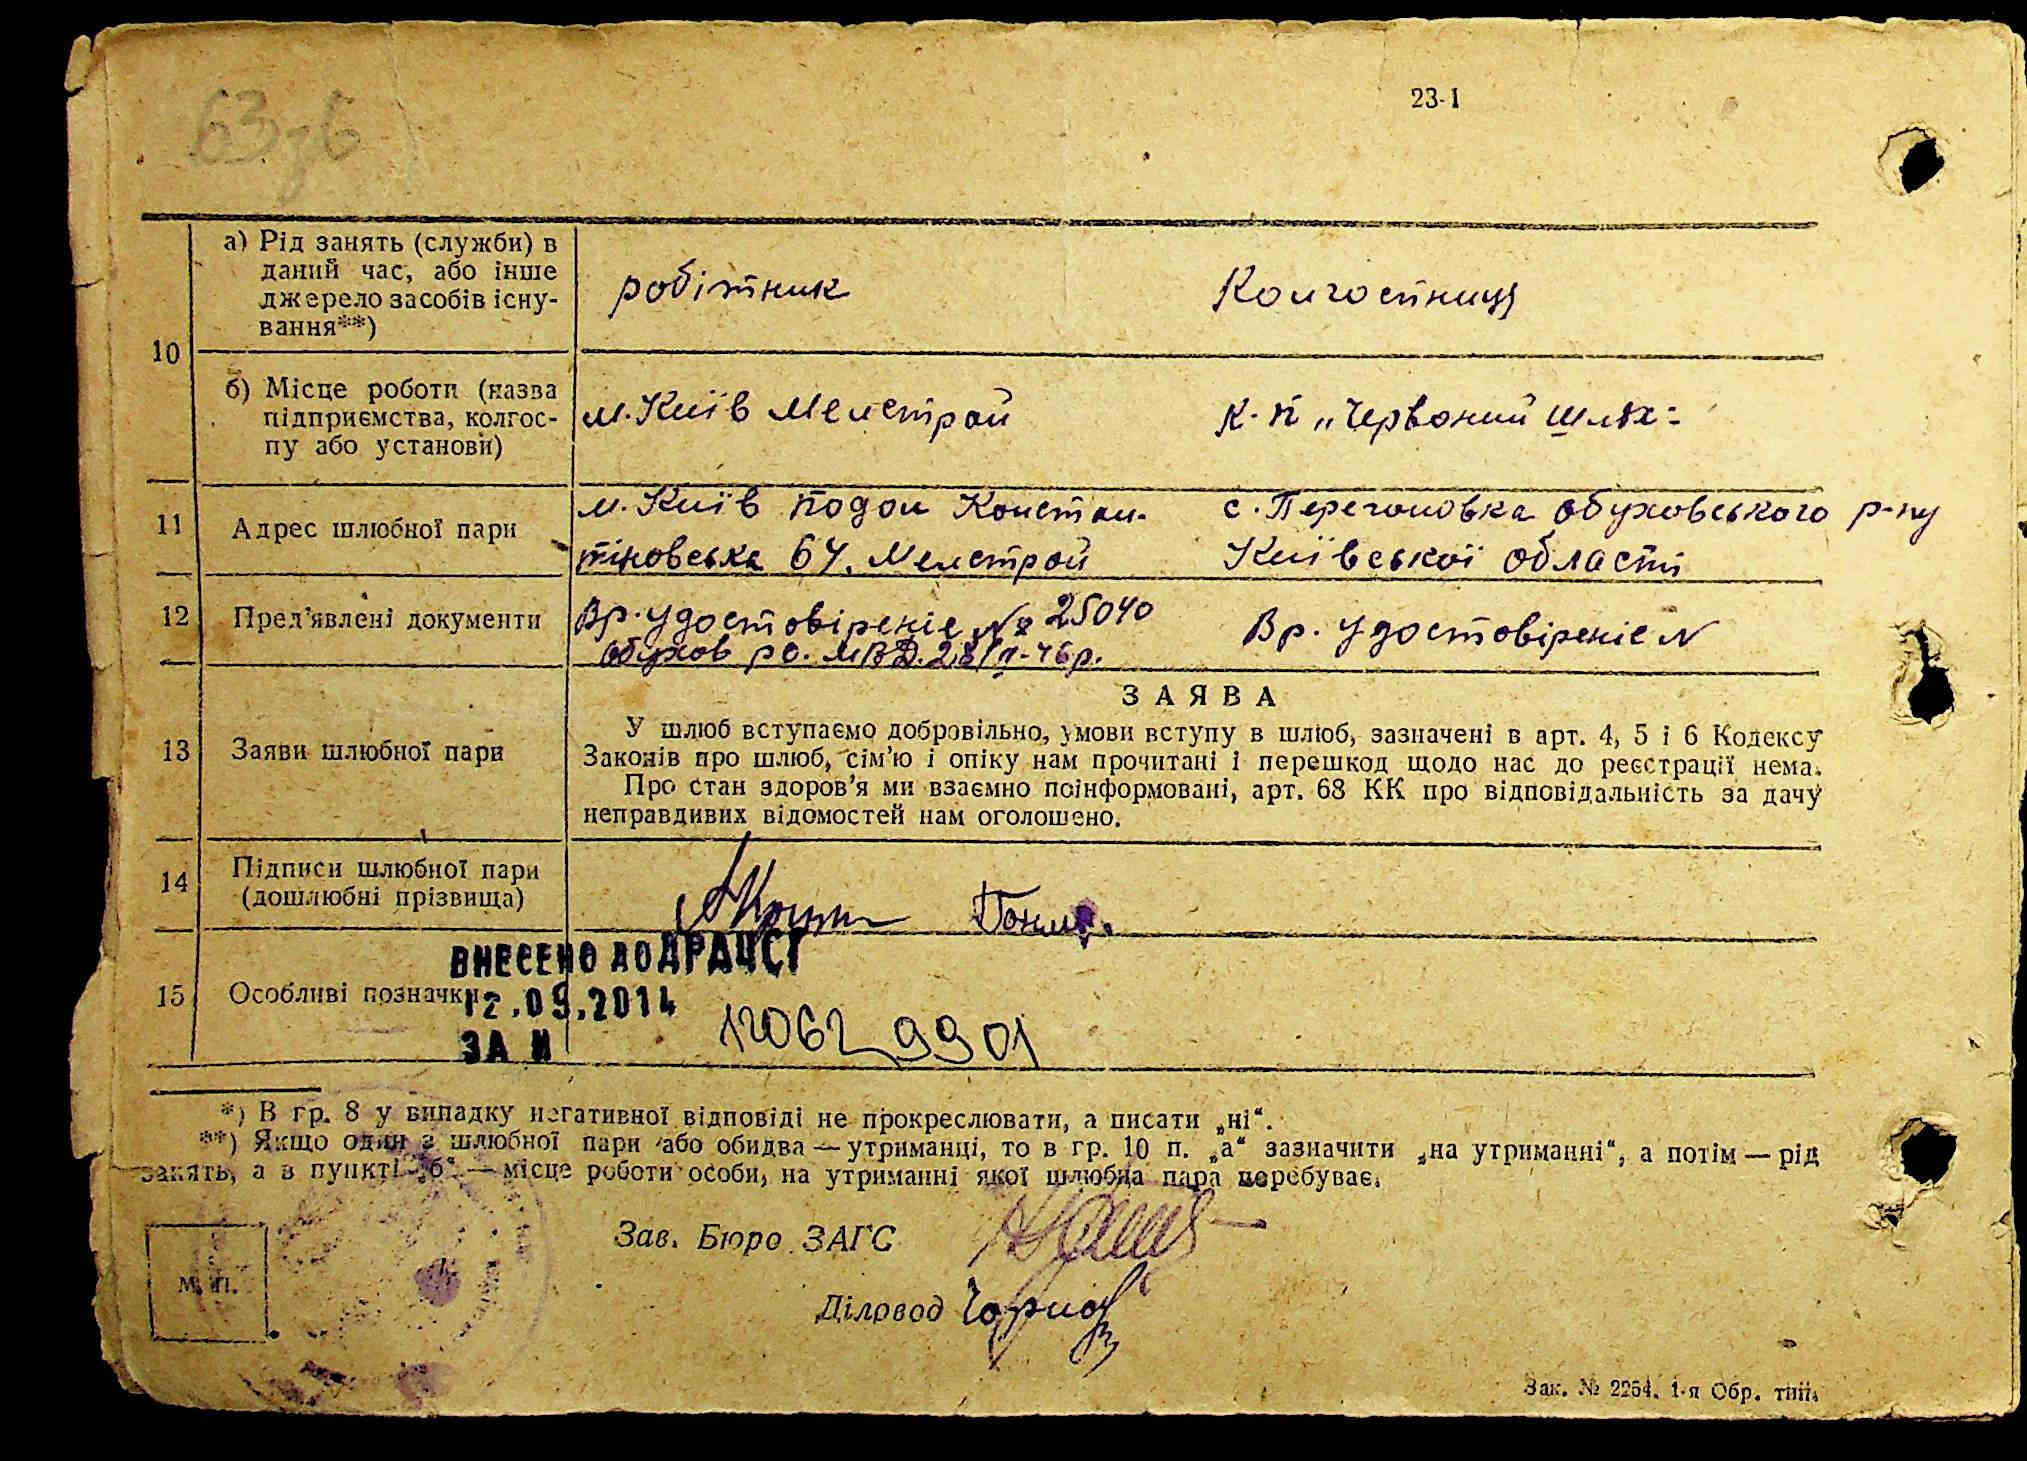 63зв
23-1
10
а) Рід занять (служби) в
даний час, або інше
джерело засобів існу-
вання**)
робітник
Колгоспниця
б) Місце роботи (назва
підприємства, колгос-
пу або установи)
м. Київ Мелстрой
к-п „Червоний Шлях"
11
Адрес шлюбної пари
м. Київ Подол Констан-
тіновська 64. Мелстрой
с. Перегоновка обуховського р-ну
Київської області
12
Пред'явлені документи
Вр. удостовіреніе № 25040
обухов ро. МВД. 28/II-46р.
Вр. удостовіреніе N
13
Заяви шлюбної пари
ЗАЯВА
У шлюб вступаємо добровільно, умови вступу в шлюб, зазначені в арт. 4, 5 і 6 Кодексу
Законів про шлюб, сім'ю і опіку нам прочитані і перешкод щодо нас до реєстрації нема.
Про стан здоров'я ми взаємно поінформовані, арт. 68 КК про відповідальність за дачу
неправдивих відомостей нам оголошено.
14
Підписи шлюбної пари
(дошлюбні прізвища)
15
Особливі позначки
ВНЕСЕНО ДО ДРАЦСГ
12.09.2014
ЗА №
120629901
*) В гр. 8 у випадку негативної відповіді не прокреслювати, а писати „ні“.
**) Якщо один з шлюбної пари або обидва — утриманці, то в гр. 10 п. „а“ зазначити „на утриманні“, а потім — рід
занять, а в пункті „б“ — місце роботи особи, на утриманні якої шлюбна пара перебуває.
Зав. Бюро ЗАГС
Діловод
М. П.
Зак. № 2254. 1-я Обр. тип.